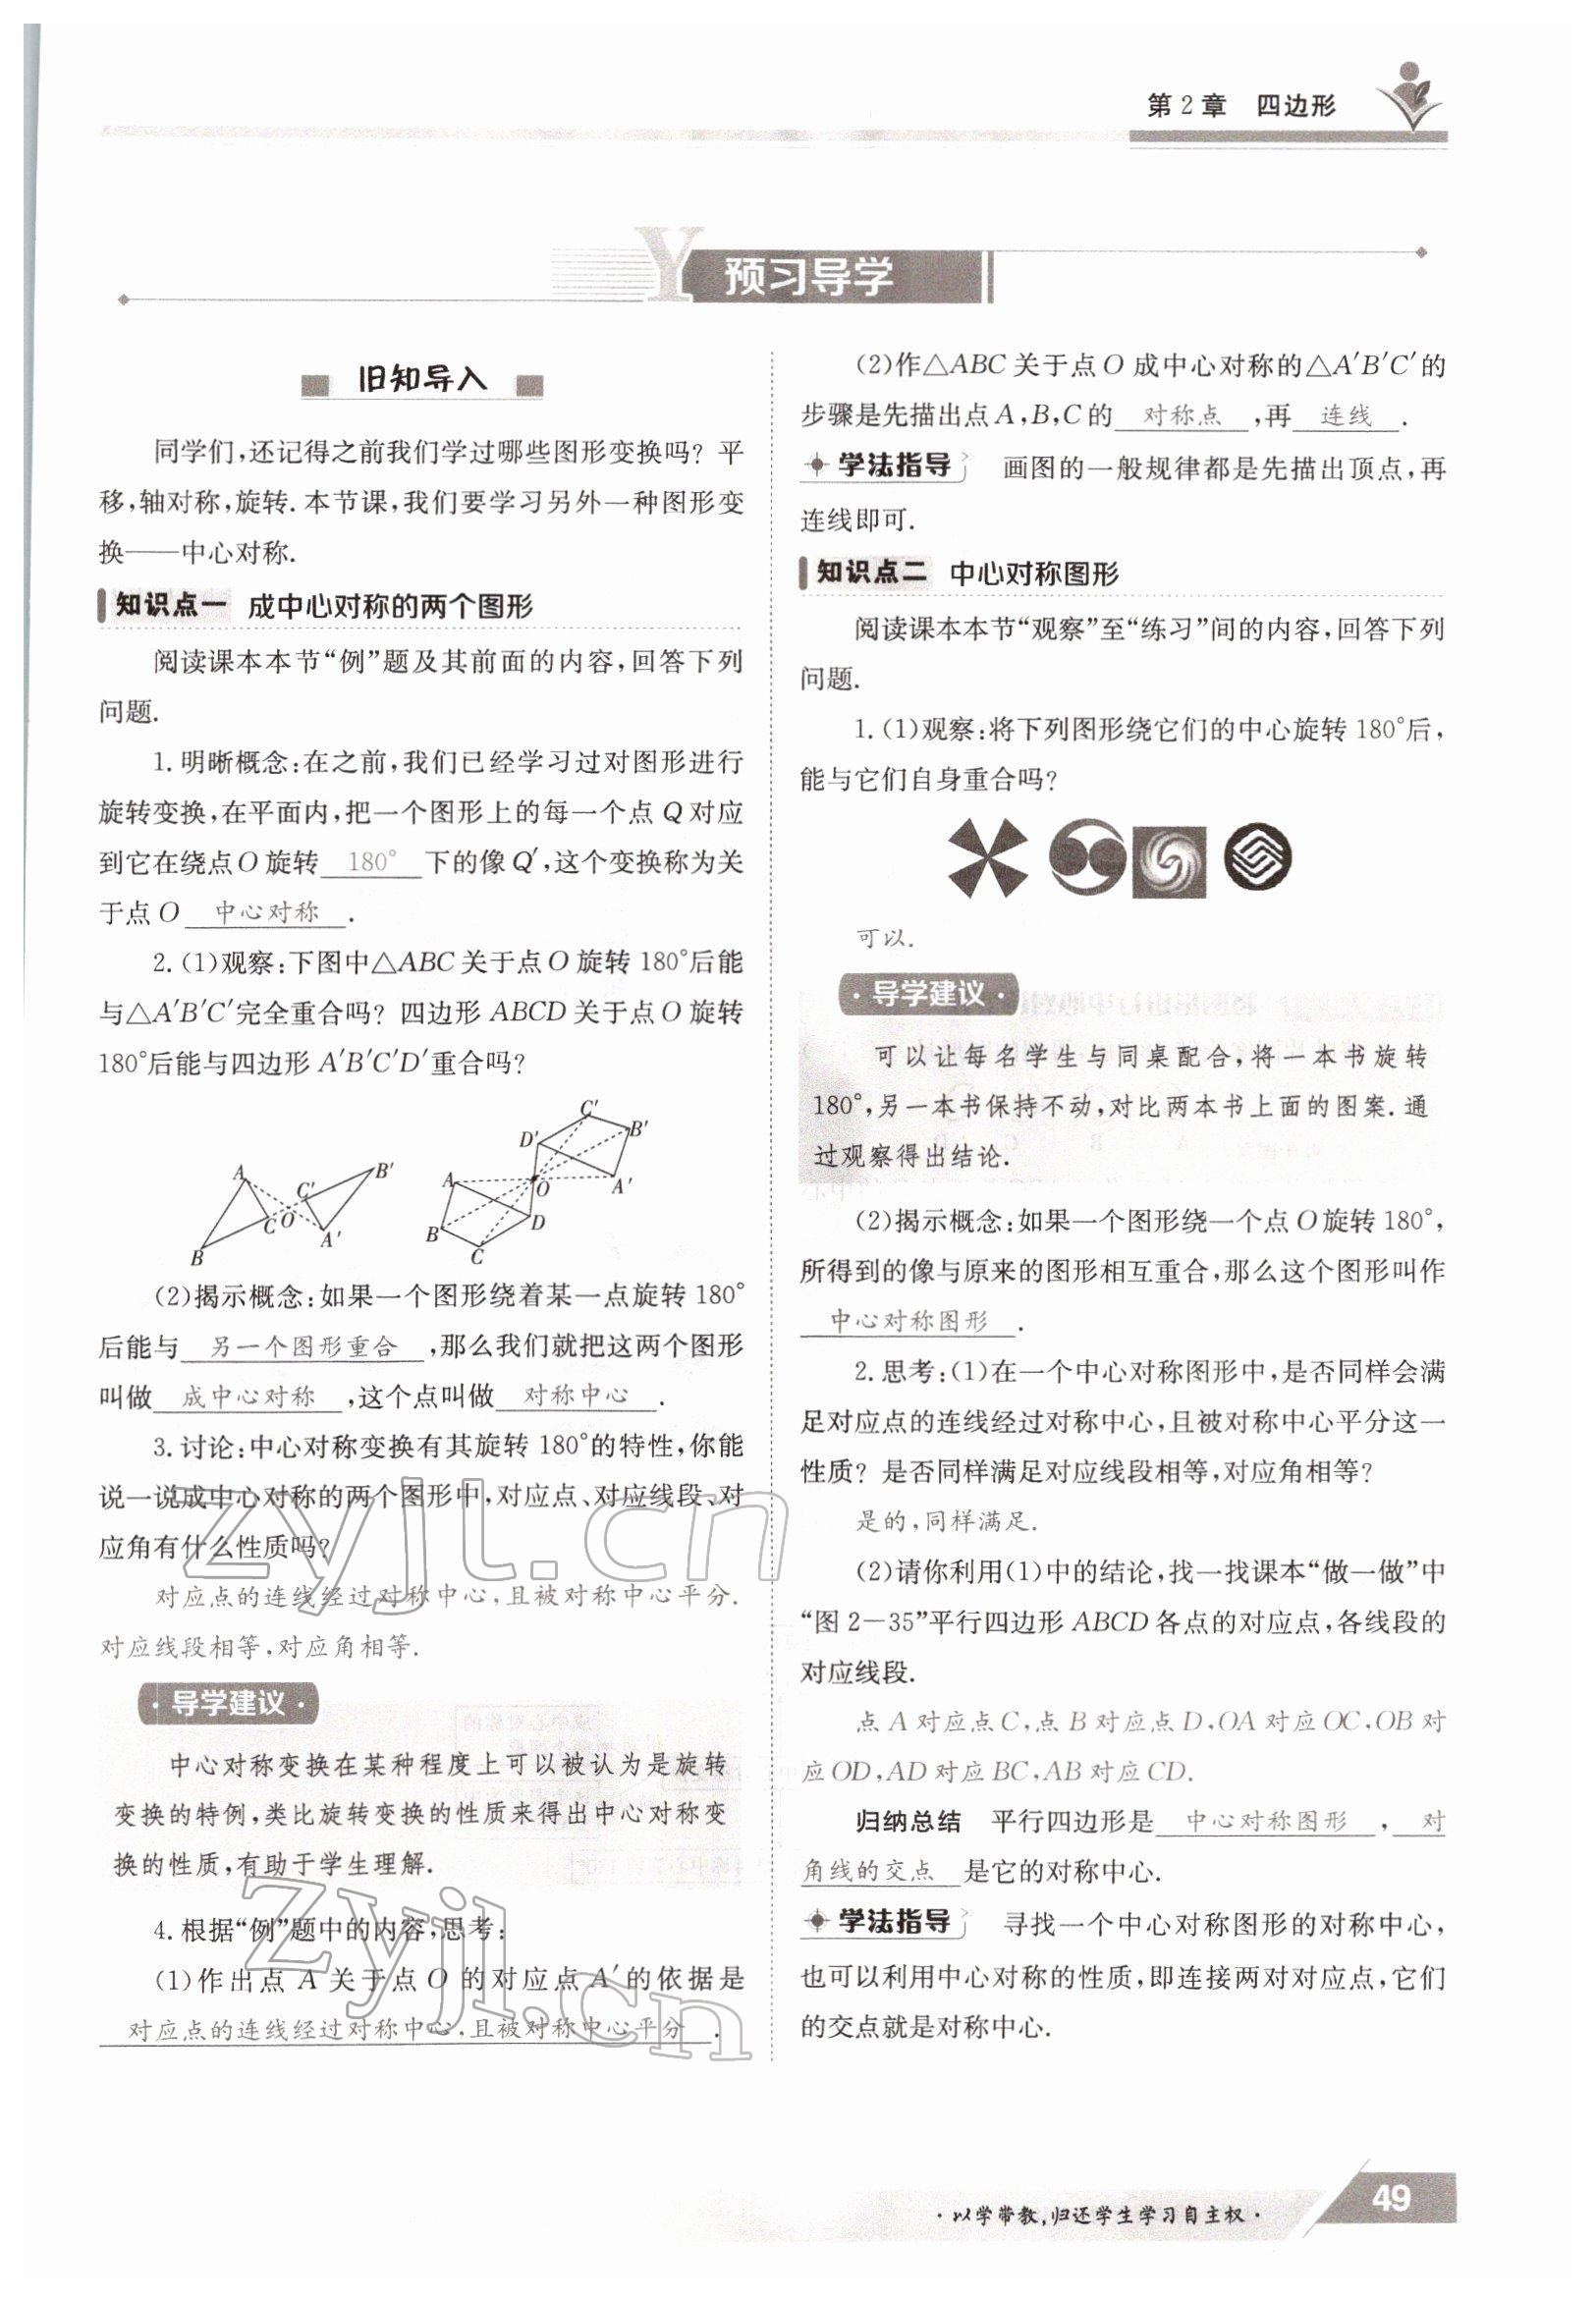 第2章 四边形
预习导学
旧知导入
同学们,还记得之前我们学过哪些图形变换吗? 平
移,轴对称,旋转. 本节课,我们要学习另外一种图形变
换——中心对称.
知识点一 成中心对称的两个图形
阅读课本本节“例”题及其前面的内容,回答下列
问题.
1. 明晰概念:在之前,我们已经学习过对图形进行
旋转变换,在平面内,把一个图形上的每一个点 Q 对应
到它在绕点O 旋转 180° 下的像Q′,这个变换称为关
于点O 中心对称 .
2. (1)观察:下图中△ABC关于点O 旋转180°后能
与△A′B′C′完全重合吗? 四边形 ABCD 关于点O 旋转
180°后能与四边形 A′B′C′D′重合吗?
A
B
C
O
C′
B′
A′
C′
B′
D′
A
O
A′
B
D
C
(2)揭示概念:如果一个图形绕着某一点旋转180°
后能与 另一个图形重合 ,那么我们就把这两个图形
叫做 成中心对称 ,这个点叫做 对称中心 .
3. 讨论:中心对称变换有其旋转180°的特性,你能
说一说成中心对称的两个图形中,对应点、对应线段、对
应角有什么性质吗?
对应点的连线经过对称中心,且被对称中心平分.
对应线段相等,对应角相等.
·导学建议·
中心对称变换在某种程度上可以被认为是旋转
变换的特例,类比旋转变换的性质来得出中心对称变
换的性质,有助于学生理解.
4. 根据“例”题中的内容,思考:
(1)作出点 A 关于点 O 的对应点 A′的依据是
对应点的连线经过对称中心,且被对称中心平分 .
(2)作△ABC 关于点O 成中心对称的△A′B′C′的
步骤是先描出点A,B,C的 对称点 ,再 连线 .
学法指导 画图的一般规律都是先描出顶点,再
连线即可.
知识点二 中心对称图形
阅读课本本节“观察”至“练习”间的内容,回答下列
问题.
1. (1)观察:将下列图形绕它们的中心旋转180°后,
能与它们自身重合吗?
可以.
·导学建议·
可以让每名学生与同桌配合,将一本书旋转
180°,另一本书保持不动,对比两本书上面的图案. 通
过观察得出结论.
(2)揭示概念:如果一个图形绕一个点O旋转180°,
所得到的像与原来的图形相互重合,那么这个图形叫作
中心对称图形 .
2. 思考:(1)在一个中心对称图形中,是否同样会满
足对应点的连线经过对称中心,且被对称中心平分这一
性质? 是否同样满足对应线段相等,对应角相等?
是的,同样满足.
(2)请你利用(1)中的结论,找一找课本“做一做”中
“图2-35”平行四边形ABCD各点的对应点,各线段的
对应线段.
点A对应点C,点B对应点D,OA对应OC,OB对
应OD,AD对应BC,AB对应CD.
归纳总结 平行四边形是 中心对称图形 , 对
角线的交点 是它的对称中心.
学法指导 寻找一个中心对称图形的对称中心,
也可以利用中心对称的性质,即连接两对对应点,它们
的交点就是对称中心.
·以学带教,归还学生学习自主权·
49
zyjl.cn
zyjl.cn